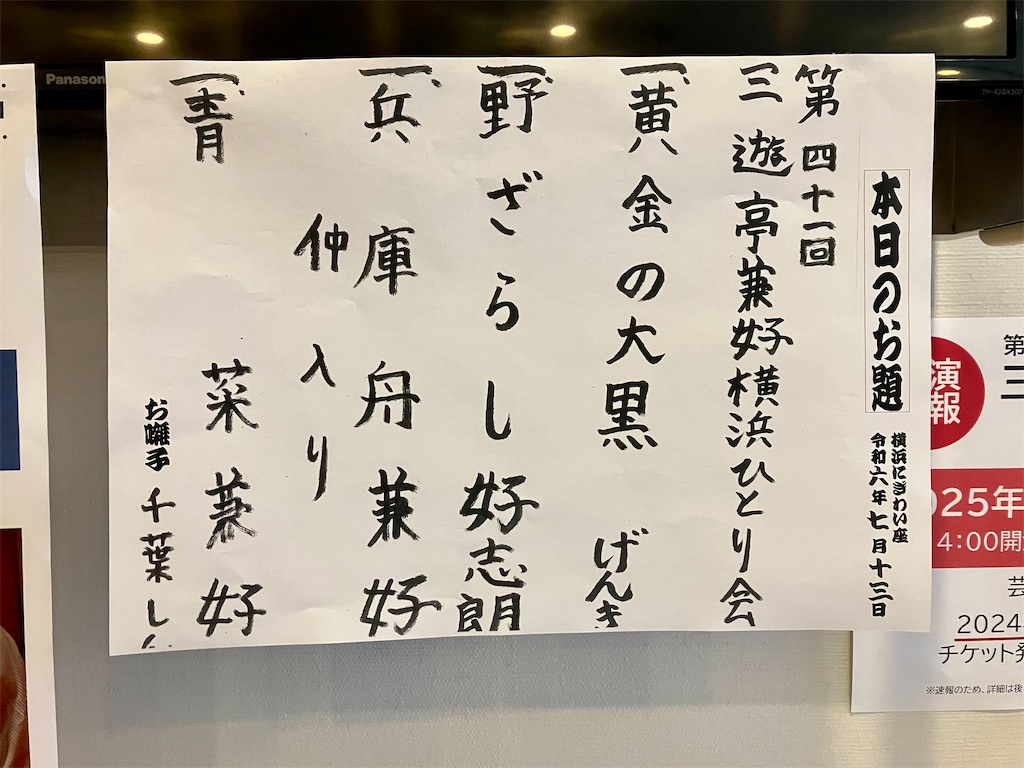 本日のお題
横浜にぎわい座
令和六年七月十三日
第四十一回
三遊亭兼好横浜ひとり会
一、黄金の大黒 げんき
一、野ざらし 好志朗
一、兵庫舟 兼好
仲入り
一、青菜 兼好
お囃子 千葉しん
Panasonic
TH-43GX500
演
報
第
三
025年
4:00開
芸
2024
チケット発
※速報のため、詳細は後